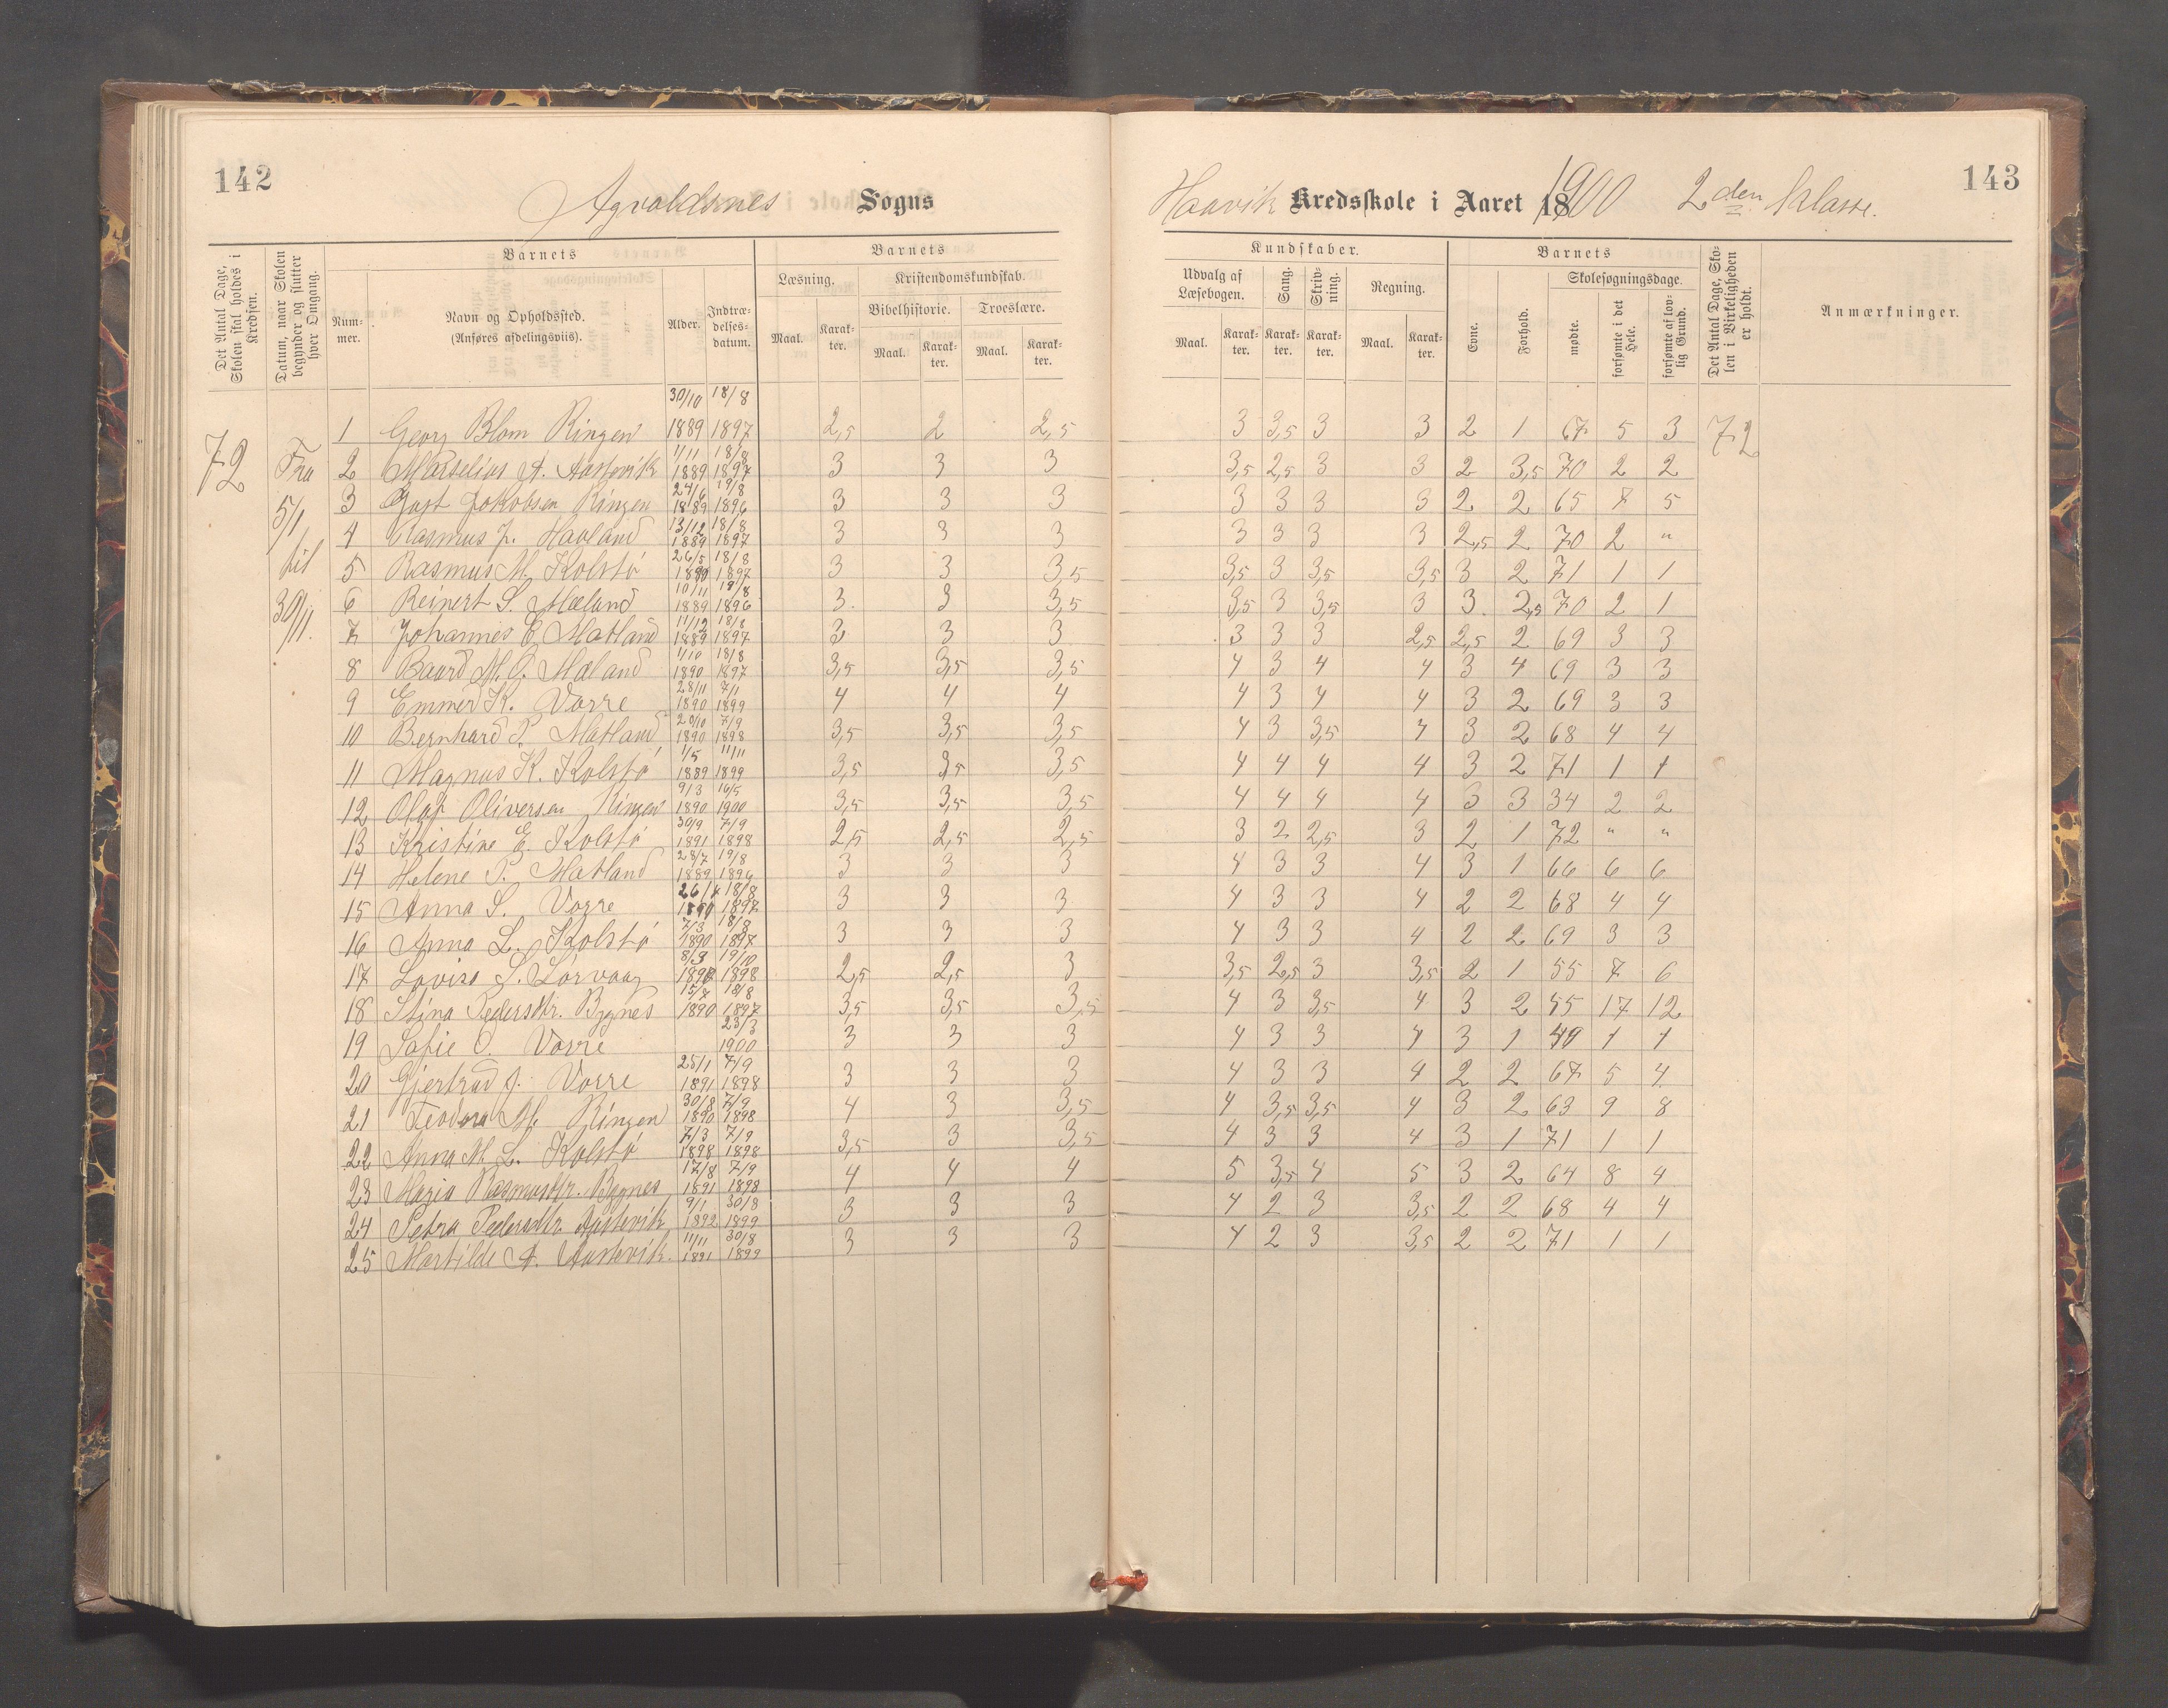 142
Agvaldsnes Sogns
Det Antal Dage, Skolen skal holdes i Kredsen.
Datum, naar Skolen begynder og slutter hver Omgang.
Barnets
Num-mer.
Navn og Opholdssted.
(Anføres afdelingsviis).
Alder.
Indtræ-delses-datum.
Barnets
Læsning.
Kristendomskundskab.
Bibelhistorie.
Troeslære.
Maal. Karak-ter. Maal. Karak-ter. Maal. Karak-ter.
72
Fra 5/1 til 30/11.
1 Georg Blom Ringen 30/10 1889 18/8 1897 2,5 2 2,5
2 Marselius A. Austevik 1/11 1889 18/8 1897 3 3 3
3 Gust Jakobsen Ringen 24/6 1889 19/8 1896 3 3 3
4 Rasmus J. Havland 13/12 1889 18/8 1897 3 3 3
5 Rasmus M. Kolstø 26/5 1890 18/8 1897 3 3 3,5
6 Reinert S. Mæland 10/11 1889 19/8 1896 3 3 3,5
7 Johannes E. Matland 11/12 1889 18/8 1897 3 3 3
8 Baard M. O. Mæland 1/10 1890 18/8 1897 3,5 3,5 3,5
9 Emmer K. Vorre 28/11 1890 7/1 1899 4 4 4
10 Bernhard P. Matland 20/10 1890 7/9 1898 3,5 3,5 3,5
11 Magnus K. Kolstø 1/5 1889 11/11 1899 3,5 3,5 3,5
12 Olaf Oliversen Ringen 9/3 1890 16/5 1900 3,5 3,5 3,5
13 Kristine E. Kolstø 30/9 1891 7/9 1898 2,5 2,5 2,5
14 Helene P. Matland 28/7 1889 19/8 1896 3 3 3
15 Anna S. Vorre 26/1 1890 18/8 1897 3 3 3
16 Anna L. Kolstø 7/3 1890 18/8 1897 3 3 3
17 Lovise S. Sørvaag 8/3 19/10 1898 2,5 2,5 3
18 Stina Pedersdtr. Bygnes 15/7 1890 18/8 1897 3,5 3,5 3,5
19 Sofie O. Vorre 23/3 1900 3 3 3
20 Gjertrud J. Vorre 25/1 1891 7/9 1898 3 3 3
21 Teodora M. Ringen 30/8 1890 7/9 1898 4 3 3,5
22 Anna M. L. Kolstø 7/3 1898 7/9 1898 3,5 3 3,5
23 Maria Rasmusdtr. Bygnes 17/8 1891 7/9 1898 4 4 4
24 Petra Pedersdtr. Austevik 9/1 1892 30/8 1899 3 3 3
25 Martilde A. Austevik. 11/11 1891 30/8 1899 3 3 3
143
Haavik Kredsskole i Aaret 1900 2den Klasse.
Kundskaber.
Udvalg af Læsebogen.
Sang.
Skriv-ning.
Regning.
Maal. Karak-ter. Karak-ter. Karak-ter. Maal. Karak-ter.
Barnets
Evne.
Forhold.
Skolesøgningsdage.
mødte.
forsømte i det Hele.
forsømte af lov-lig Grund.
Det Antal Dage, Sko-len i Virkeligheden er holdt.
Anmærkninger.
3 3,5 3 3 2 1 67 5 3 72
3,5 2,5 3 3 2 3,5 70 2 2
3 3 3 3 2 2 65 7 5
3 3 3 3 2,5 2 70 2 "
3,5 3 3,5 3,5 3 2 71 1 1
3,5 3 3,5 3 3 2,5 70 2 1
3 3 3 2,5 2,5 2 69 3 3
4 3 4 4 3 4 69 3 3
4 3 4 4 3 2 69 3 3
4 3 3,5 4 3 2 68 4 4
4 4 4 4 3 2 71 1 1
4 4 4 4 3 3 34 2 2
3 2 2,5 3 2 1 72 " "
4 3 3 4 3 1 66 6 6
4 3 3 4 2 2 68 4 4
4 3 3 4 2 2 69 3 3
3,5 2,5 3 3,5 2 1 55 7 6
4 3 3,5 4 3 2 55 17 12
4 3 3 4 3 1 49 1 1
4 3 3 4 2 2 67 5 4
4 3,5 3,5 4 3 2 63 9 8
4 3 3 4 3 1 71 1 1
5 3,5 4 5 3 2 64 8 4
4 2 3 3,5 2 2 68 4 4
4 2 3 3,5 2 2 71 1 1